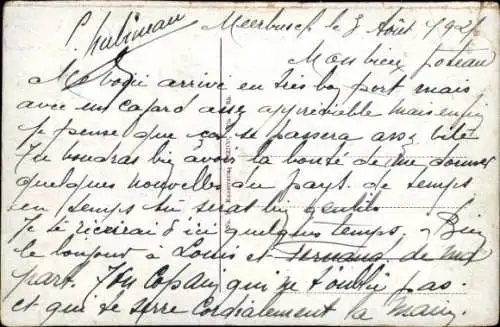 Meerbusch le 3 Août 192
Mon vieux poteau
Me voici arrivé en très bon port mais
avec un cafard assez appréciable mais enfin
je pense que ça se passera assez vite
Tu voudras bien avoir la bonté de me donner
quelques nouvelles du pays. de temps
en temps tu serai bien gentils
Je te riécrirai d'ici quelques temps. Bien
le bonjour à Louis et Fernand de ma
part. Ton Copain qui ne t'oublie pas.
et qui te serre cordialement la Main.